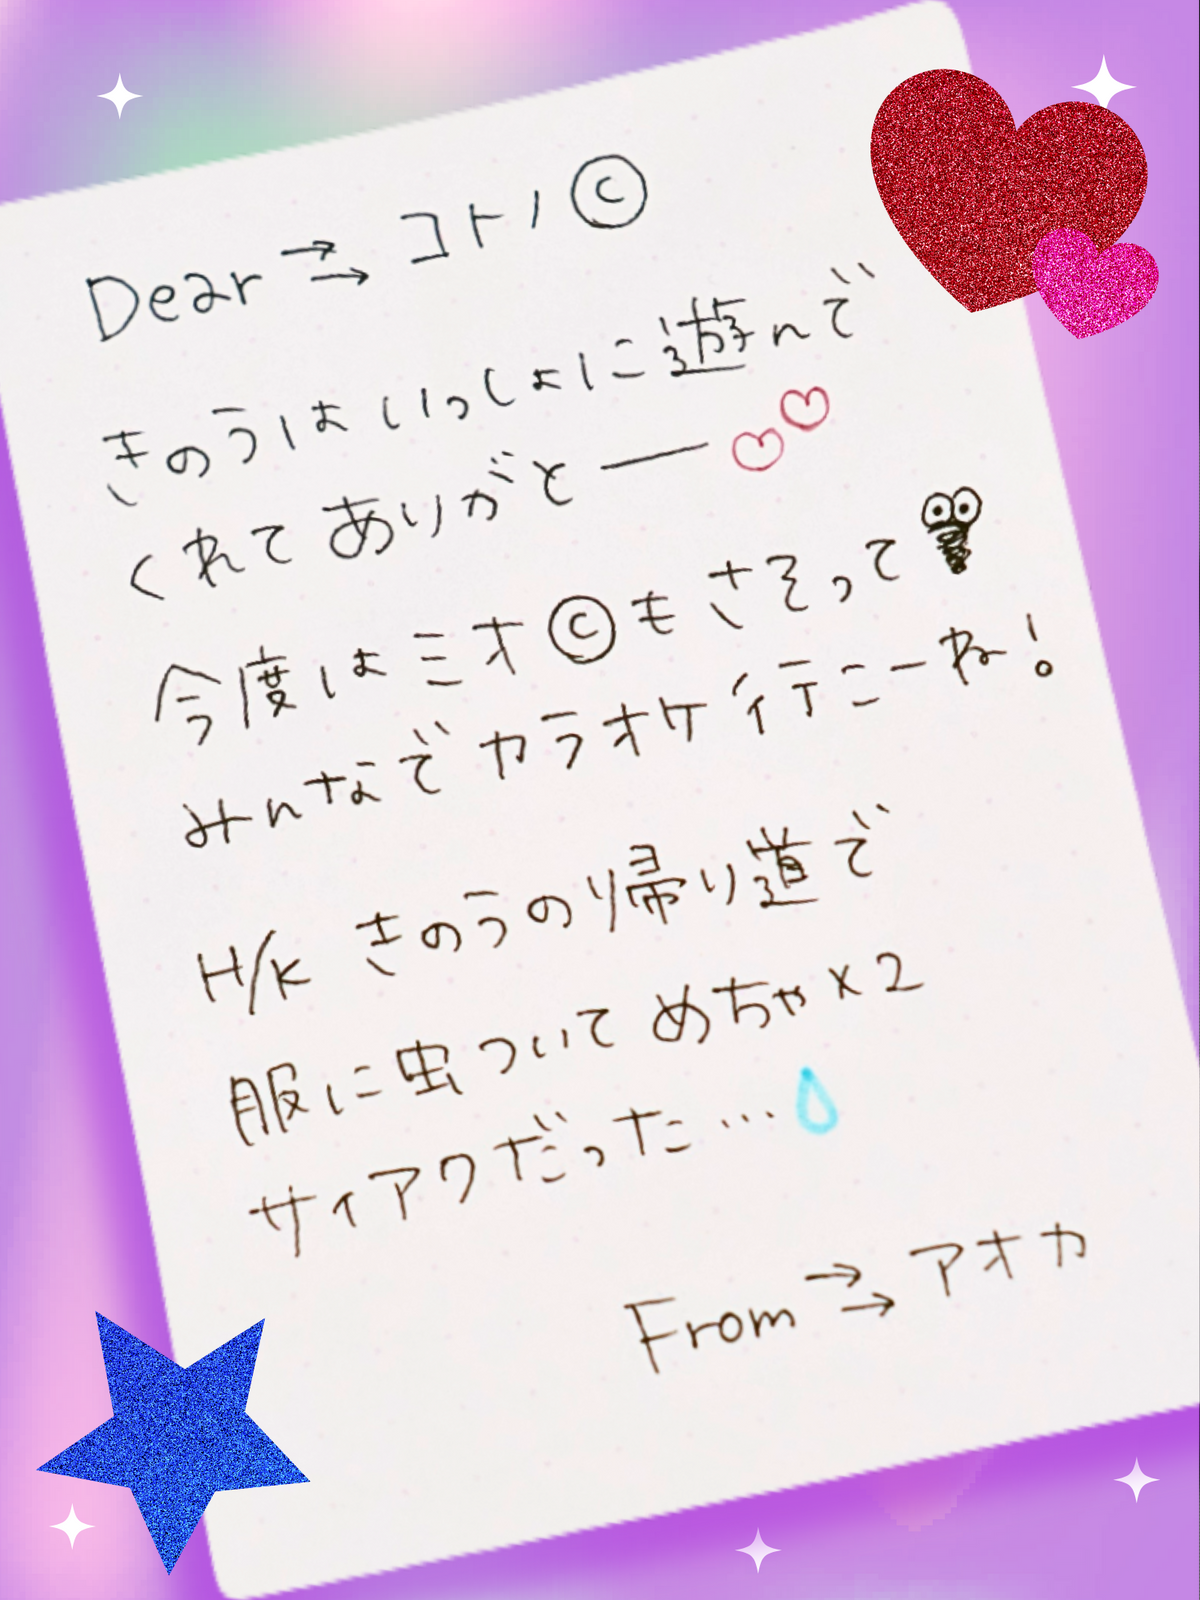 Dear⇉コトノⓒ
きのうはいっしょに遊んで
くれてありがとー♡♡
今度はミオⓒもさそって
みんなでカラオケ行こーね!
H/K きのうの帰り道で
服に虫ついてめちゃ×2
サイアクだった…
From⇉アオカ